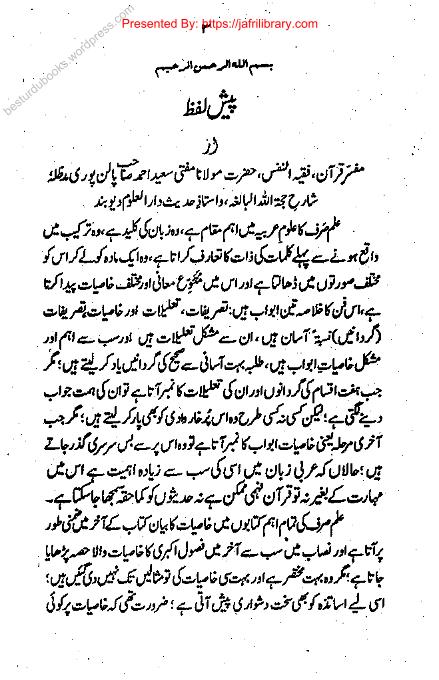 Presented By: https://jafrilibrary.com
besturdubooks.wordpress.com
۳
بسم الله الرحمن الرحیم
پیش لفظ
از
مفسر قرآن، فقیہ النفس، حضرت مولانا مفتی سعید احمد صاحب پالن پوری مدظلہٗ
شارح حجۃ اللہ البالغہ، واستاذ حدیث دارالعلوم دیوبند
علم صرف کا علوم عربیہ میں اہم مقام ہے، وہ زبان کی کلید ہے، وہ ترکیب میں
واقع ہونے سے پہلے کلمات کی ذات کا تعارف کراتا ہے، وہ ایک مادہ کو لے کر اس کو
مختلف صورتوں میں ڈھالتا ہے اور اس میں متنوع معانی اور مختلف خاصیات پیدا کرتا
ہے، اس فن کا خلاصہ تین ابواب ہیں: تصریفات، تعلیلات اور خاصیات، تصریفات
(گردانیں) نسبۃً آسان ہیں، ان سے مشکل تعلیلات ہیں اور سب سے اہم اور
مشکل خاصیاتِ ابواب ہیں، طلبہ بہت آسانی سے صحیح کی گردانیں یاد کر لیتے ہیں؛ مگر
جب ہفت اقسام کی گردانوں اور ان کی تعلیلات کا نمبر آتا ہے تو ان کی ہمت جواب
دینے لگتی ہے؛ لیکن کسی نہ کسی طرح وہ اس پُرخار وادی کو بھی پار کر لیتے ہیں؛ مگر جب
آخری مرحلہ یعنی خاصیات ابواب کا نمبر آتا ہے تو وہ اس پر سے بس سرسری گذر جاتے
ہیں؛ حالاں کہ عربی زبان میں اسی کی سب سے زیادہ اہمیت ہے اس میں
مہارت کے بغیر نہ تو قرآن فہمی ممکن ہے نہ حدیثوں کو کما حقہ سمجھا جا سکتا ہے۔
علم صرف کی تمام اہم کتابوں میں خاصیات کا بیان کتاب کے آخر میں ضمنی طور
پر آتا ہے اور نصاب میں سب سے آخر میں فصول اکبری کا خاصیات والا حصہ پڑھایا
جاتا ہے؛ مگر وہ بہت مختصر ہے اور بہت سی خاصیات کی تو مثالیں تک نہیں دی گئیں ہیں؛
اسی لیے اساتذہ کو بھی سخت دشواری پیش آتی ہے؛ ضرورت تھی کہ خاصیات پر کوئی